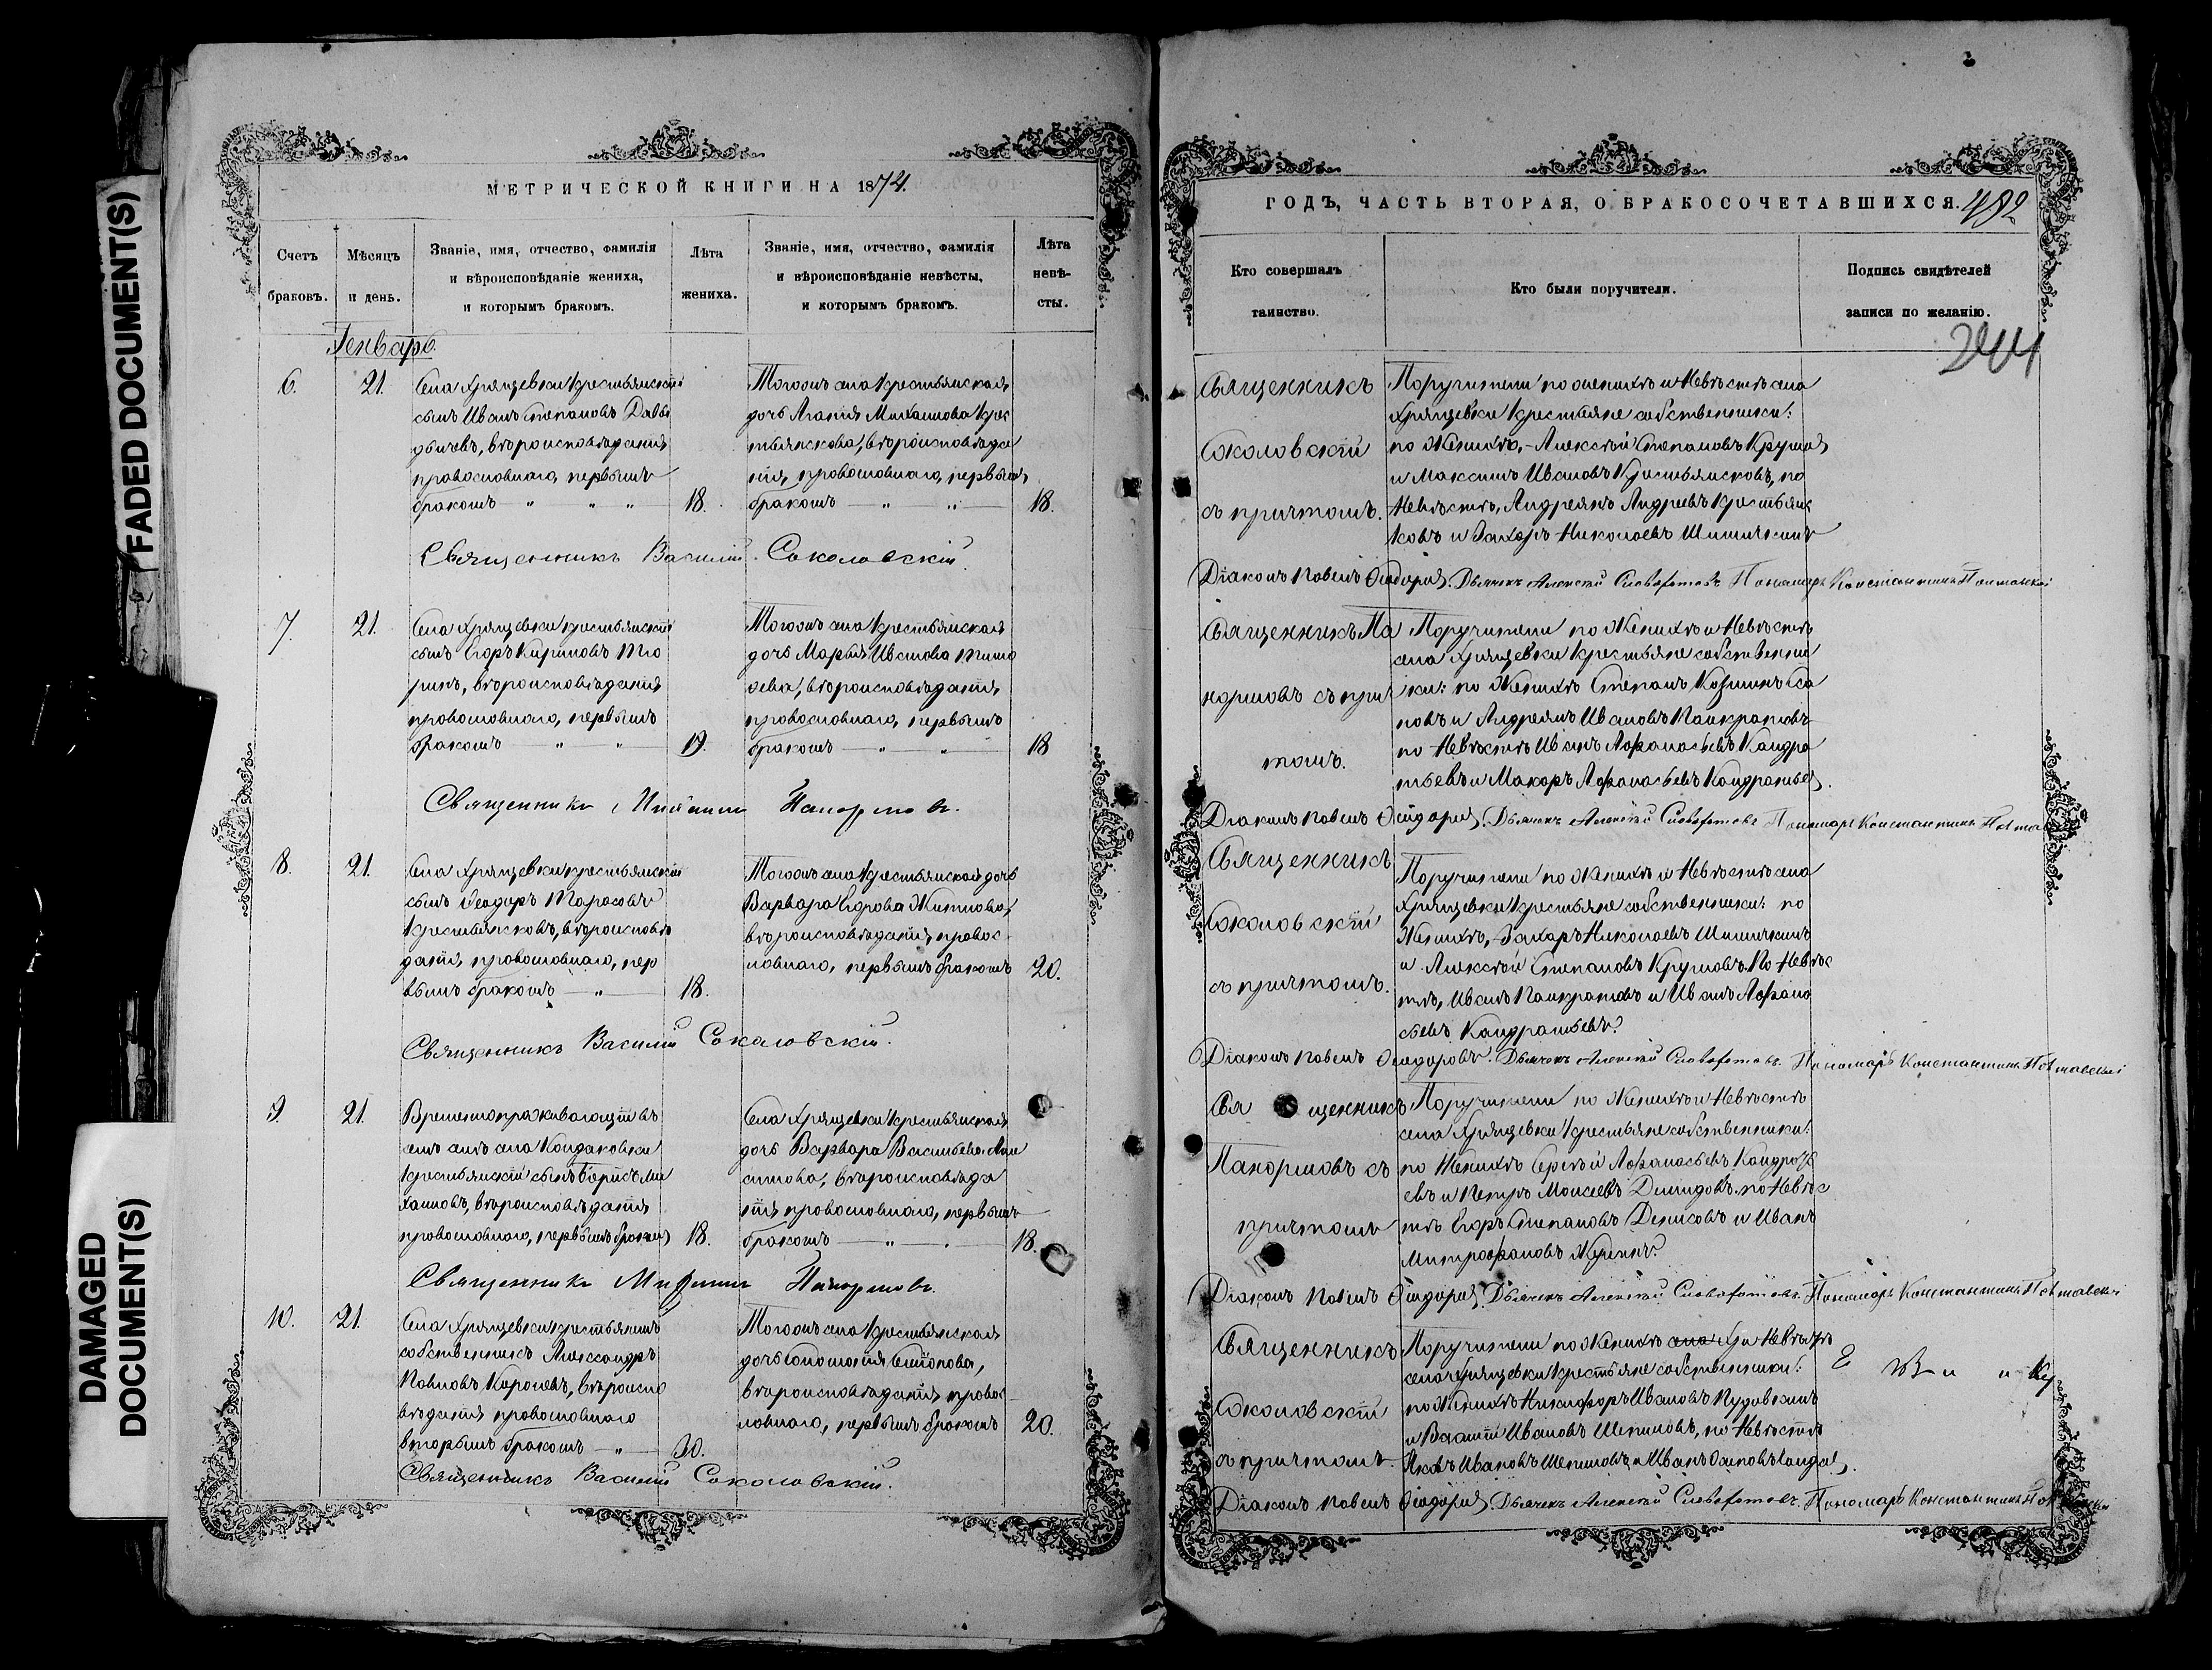 FADED DOCUMENT(S)
DAMAGED
DOCUMENT(S)
МЕТРИЧЕСКОЙ КНИГИ НА 1874.
Счетъ
браковъ.
Мѣсяцъ
и день.
Званіе, имя, отчество, фамилія
и вѣроисповѣданіе жениха,
и которымъ бракомъ.
Лѣта
жениха.
Званіе, имя, отчество, фамилія
и вѣроисповѣданіе невѣсты,
и которымъ бракомъ.
Лѣта
невѣ-
сты.
Генварь.
6.
21.
Села Хрящевки крестьянскій
сынъ Иванъ Степановъ Давы
дычевъ, вѣроисповѣданія
православнаго, первымъ
бракомъ — „ „ „
18.
Тогожъ села крестьянская
дочь Агафія Михаилова Крес
тьянскова, вѣроисповѣда
нія, православнаго, первымъ
бракомъ — „ — „ —
18.
Священникъ Василій Соколовскій.
7.
21.
Села Хрящевки крестьянскій
сынъ Егоръ Кириловъ Тю
ринъ, вѣроисповѣданія
православнаго, первымъ
бракомъ — „ — „ —
19.
Тогожъ села крестьянская
дочь Марья Иванова Тимо
вѣроисповѣданія,
православнаго, первымъ
бракомъ — „ — „ —
18
Священникъ Панормовъ.
8.
21.
Села Хрящевки крестьянскій
сынъ Ѳеодоръ Тарасовъ
Крестьянсковъ, вѣроисповѣ
данія, православнаго, пер
вымъ бракомъ — „ —
18.
Тогожъ села крестьянской дочь
Варвара Егорова
вѣроисповѣданія, правос
лавнаго, первымъ бракомъ
20.
Священникъ Василій Соколовскій.
9.
21.
Временнопроживающій въ
семъ селѣ села Кондаковки
крестьянскій сынъ Борисъ Ми
хаиловъ, вѣроисповѣданія
православнаго, первымъ бракомъ
18.
Села Хрящевки крестьянская
дочь Варвара Васильева
вѣроисповѣда
нія православнаго, первымъ
бракомъ — „ — .
18.
Священникъ Панормовъ.
10.
21.
Села Хрящевки крестьянинъ
собственникъ Александръ
Павловъ Киреевъ, вѣроиспо
вѣданія православнаго
вторымъ бракомъ — „ —
30.
Тогожъ села крестьянская
дочь Соломонія
вѣроисповѣданія правос
лавнаго, первымъ бракомъ
20.
Священникъ Василій Соколовскій.
ГОДЪ, ЧАСТЬ ВТОРАЯ, О БРАКОСОЧЕТАВШИХСЯ. 492
Кто совершалъ
таинство.
Кто были поручители.
Подпись свидѣтелей
записи по желанію.
Священникъ
Соколовскій
съ причтомъ.
Поручители по женихѣ и невѣстѣ села
Хрящевки крестьяне собственники:
по Женихѣ, Алексѣй Степановъ Круглов
и Максимъ Ивановъ Крестьянсковъ, по
Невѣстѣ, Андреянъ Андреевъ Крестьянс
ковъ и Захаръ Николаевъ Шишикинъ
Діаконъ Павелъ Ѳеодоровъ. Дьячекъ Алексѣй Пономарь Константинъ
Священникъ Па
нормовъ съ при
томъ.
Поручители по Женихѣ и Невѣстѣ
села Хрящевки крестьяне собственни
ки: по Женихѣ Степанъ
и Андреянъ Ивановъ Панкратовъ
по Невѣстѣ Иванъ Афанасьевъ Кандра
тьевъ и Макаръ Афанасьевъ Кандратьев.
Діаконъ Павелъ Ѳеодоровъ. Дьячекъ Алексѣй Пономарь Константинъ
Священникъ
Соколовскій
съ причтомъ.
Поручители по Женихѣ и Невѣстѣ села
Хрящевки крестьяне собственники: по
Женихѣ, Захаръ Николаевъ Шишикинъ
и Алексѣй Степановъ Кругловъ. По Невѣс
тѣ, Иванъ Панкратовъ и Иванъ Афана
сьевъ Кандратьевъ.
Діаконъ Павелъ Ѳеодоровъ. Дьячекъ Алексѣй Пономарь Константинъ
Священникъ
Панормовъ съ
причтомъ
Поручители по Женихѣ и Невѣстѣ
села Хрящевки крестьяне собственники:
по Женихѣ Сергѣй Афанасьевъ Кандрать
евъ и Петръ Моисеевъ Демидовъ. по Невѣс
тѣ Егоръ Степановъ Денисовъ и Иванъ
Митрофановъ
Діаконъ Павелъ Ѳеодоровъ. Дьячекъ Алексѣй Пономарь Константинъ
Священникъ
Соколовскій
съ причтомъ.
Поручители по Женихѣ и Невѣстѣ
села Хрящевки крестьяне собственники:
по Женихѣ Никифоръ Ивановъ Пудовкинъ
и Василій Ивановъ Шепиловъ, по Невѣстѣ
Яковъ Ивановъ Шепиловъ и Иванъ
Діаконъ Павелъ Ѳеодоровъ. Дьячекъ Алексѣй Пономарь Константинъ